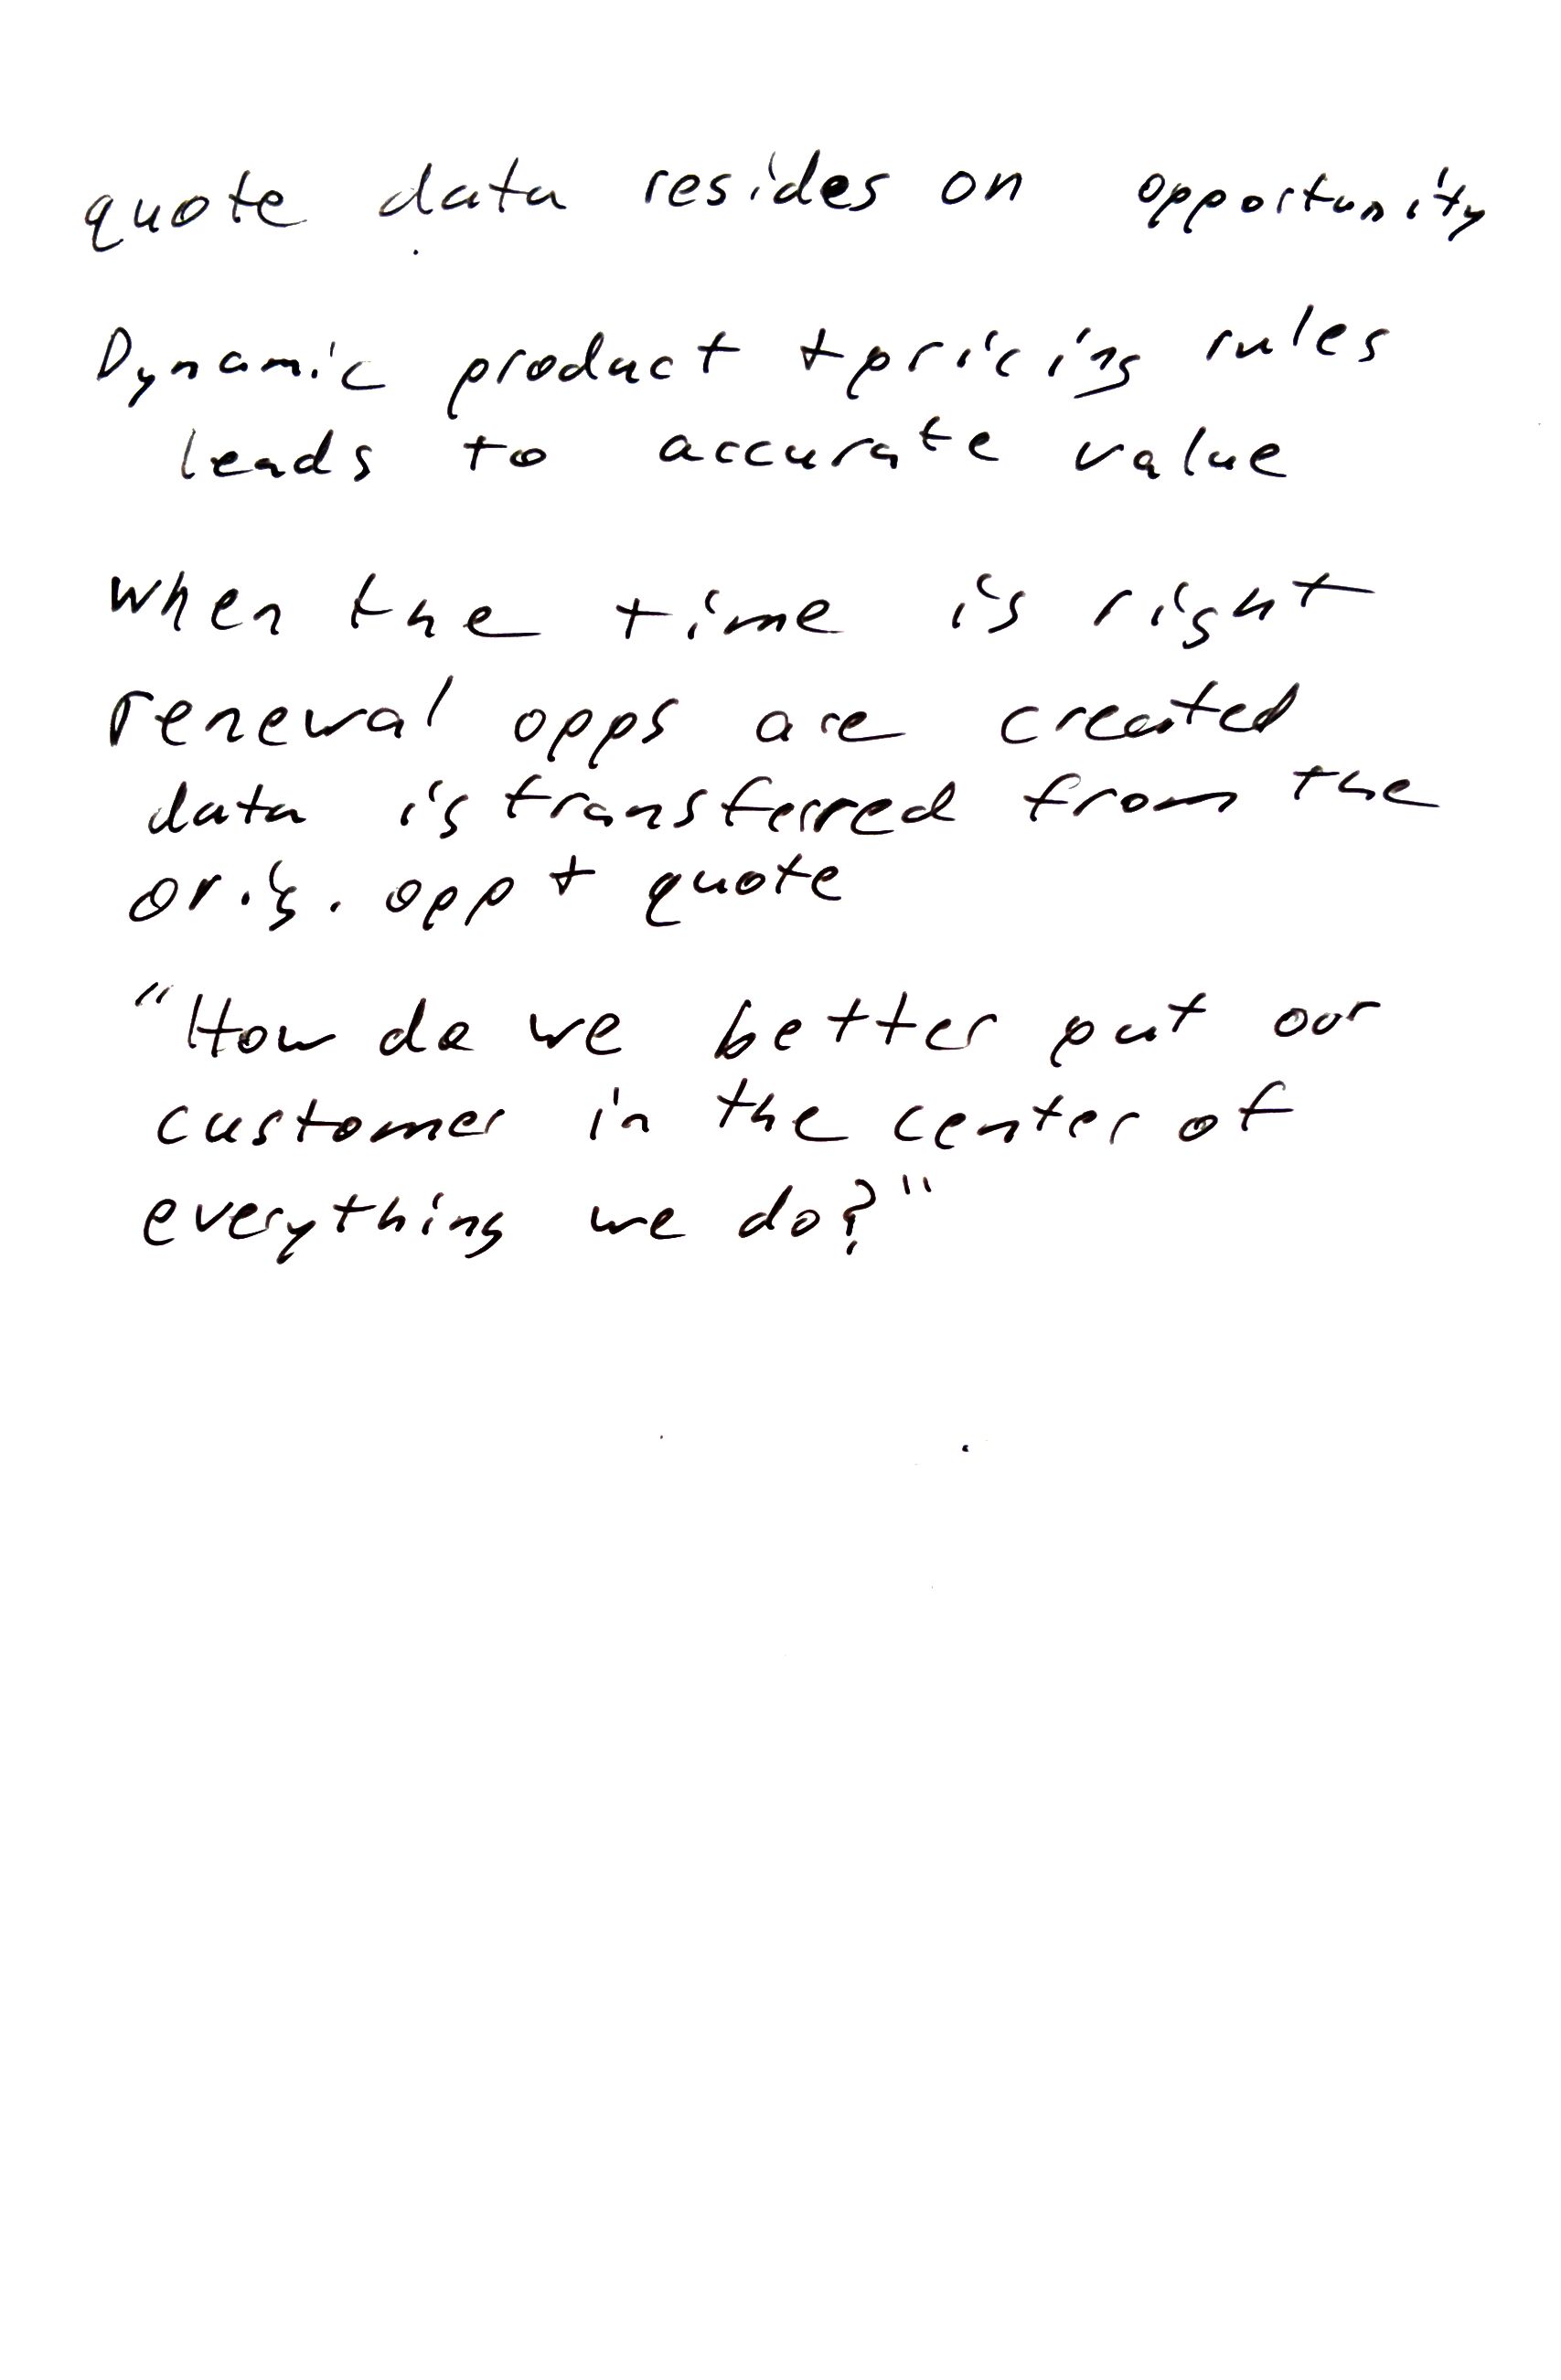 quote data resides on opportunity
Dynamic product + pricing rules
leads to accurate value
When the time is right
renewal opps are created
data is transferred from the
orig. opp + quote
"How do we better put our
customer in the center of
everything we do?"